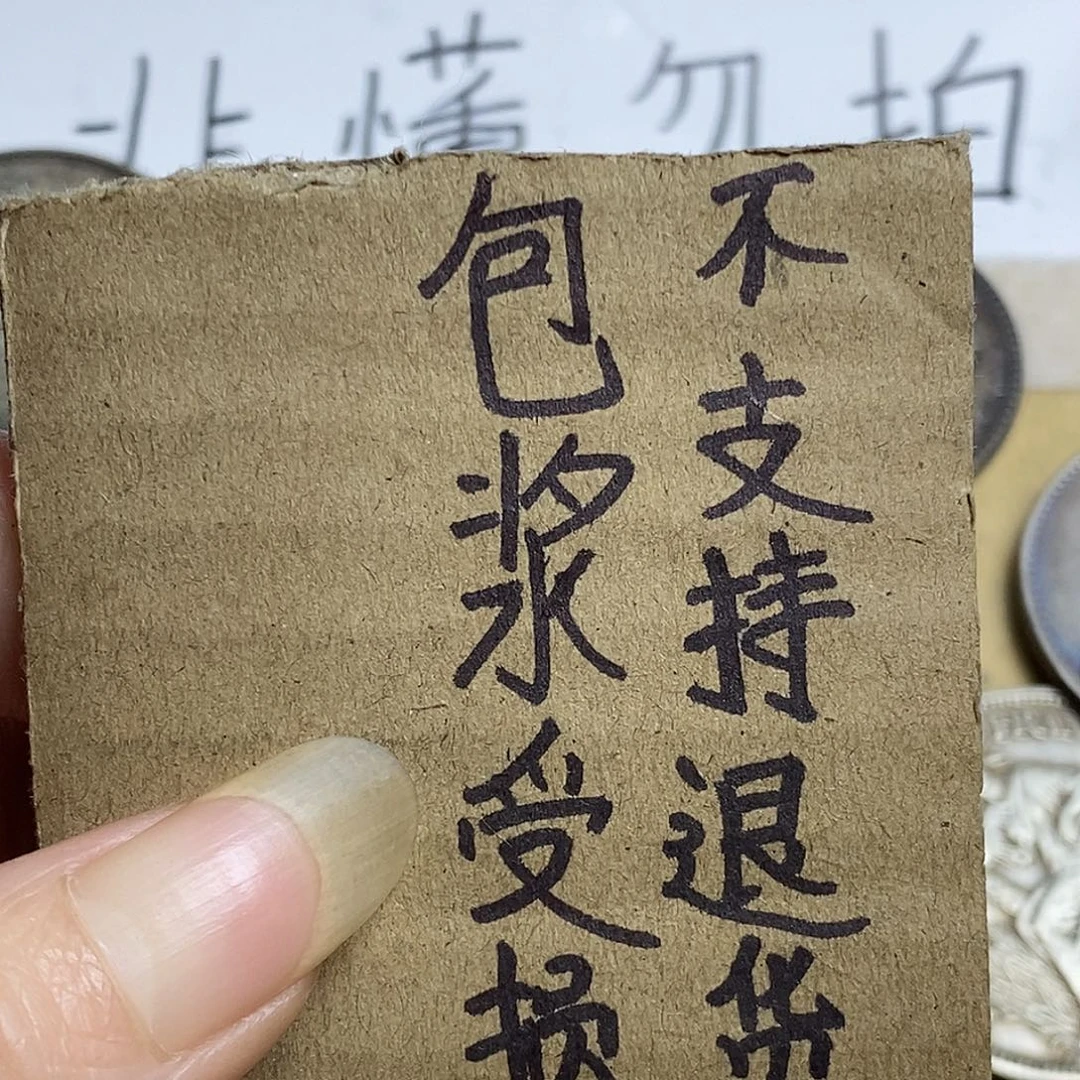 非懂勿拍
不支持退货
包浆受损